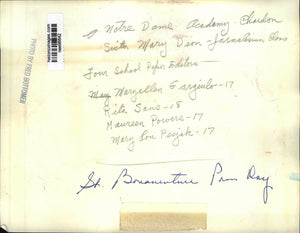 Notre Dame Academy Chardon
Sister Mary Dion - Journalism Class
Four School Paper Editors -
Maryellen Gargiulo - 17
Rita Saus - 18
Maureen Powers - 17
Mary Lou Pesjak - 17
St. Bonaventure Press Day
PHOTO BY FRED BOTTOMER